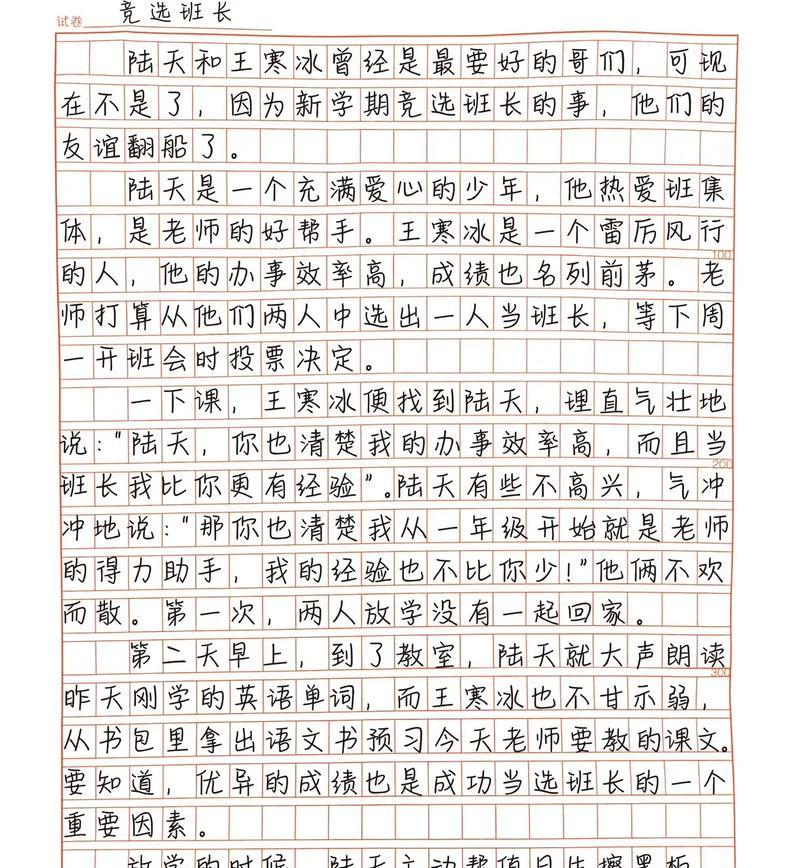 试卷 竞选班长
陆天和王寒冰曾经是最要好的哥们，可现
在不是了，因为新学期竞选班长的事，他们的
友谊翻船了。
陆天是一个充满爱心的少年，他热爱班集
体，是老师的好帮手。王寒冰是一个雷厉风行
100
的人，他的办事效率高，成绩也名列前茅。老
师打算从他们两人中选出一人当班长，等下周
一开班会时投票决定。
一下课，王寒冰便找到陆天，理直气壮地
说："陆天，你也清楚我的办事效率高，而且当
200
班长我比你更有经验"。陆天有些不高兴，气冲
冲地说："那你也清楚我从一年级开始就是老师
的得力助手，我的经验也不比你少！"他俩不欢
而散。第一次，两人放学没有一起回家。
第二天早上，到了教室，陆天就大声朗读
300
昨天刚学的英语单词，而王寒冰也不甘示弱，
从书包里拿出语文书预习今天老师要教的课文。
要知道，优异的成绩也是成功当选班长的一个
重要因素。
放学的时候，陆天主动帮值日生擦黑板，